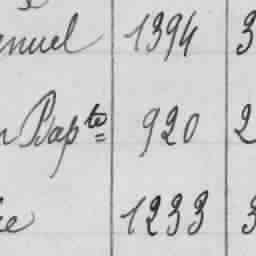 enuel 1394 3
n Bapte 920 2
ce 1233 3